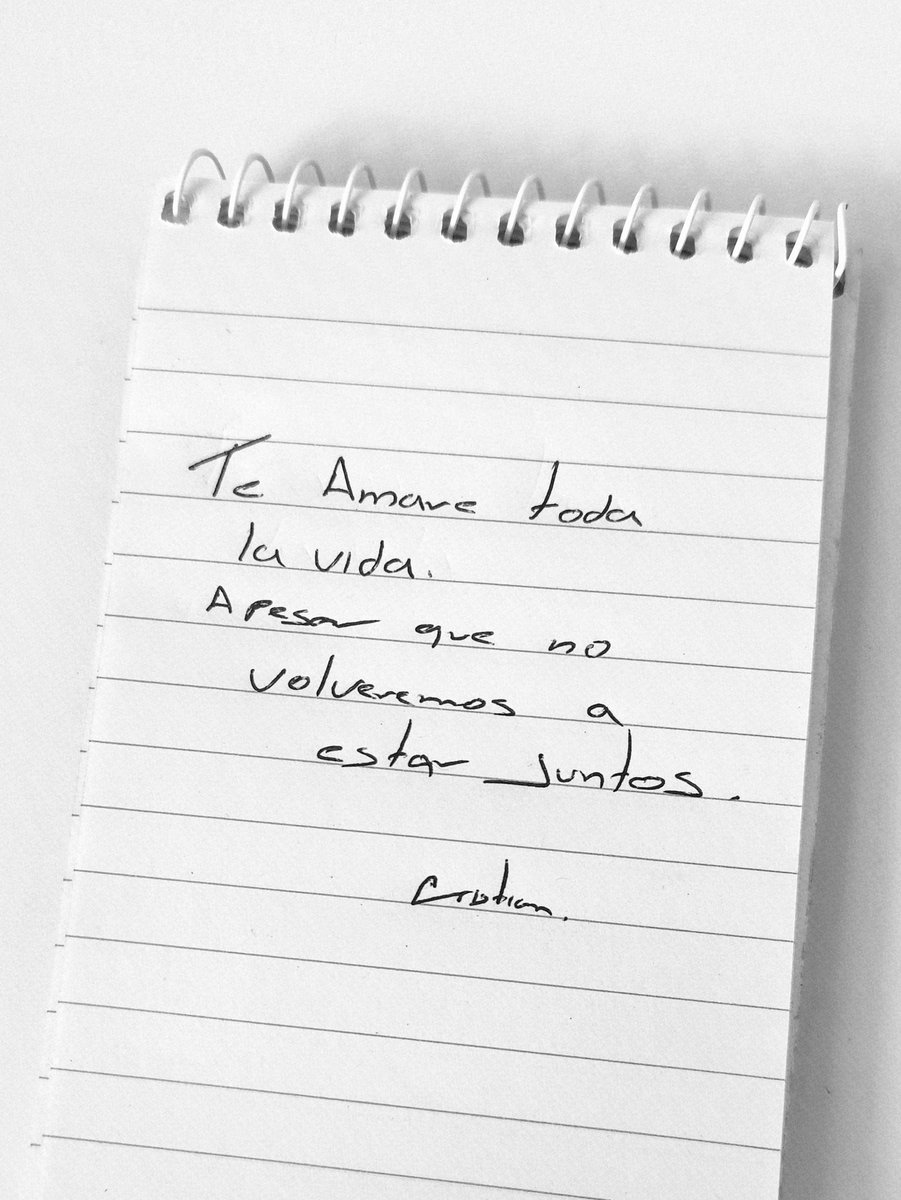 Te Amare toda
la vida.
Apesar que no
volveremos a
estar juntos.
Cristian.